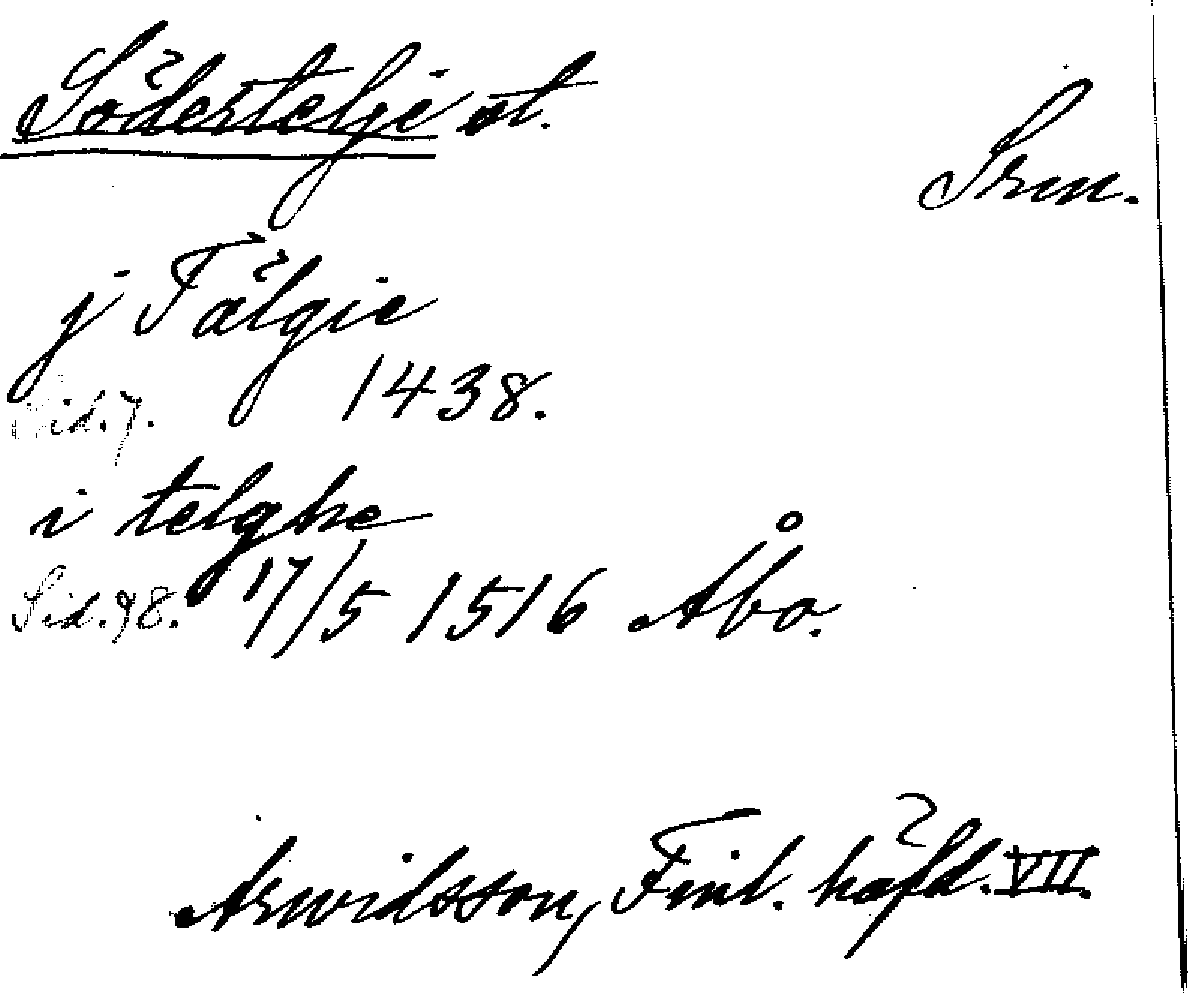 Södertelje st.
Srm.
j Tälgie
Sid. 7. 1438.
i telghe
Sid. 98. 17/5 1516 Åbo.
Arwidsson, Finl. häfd. VII.